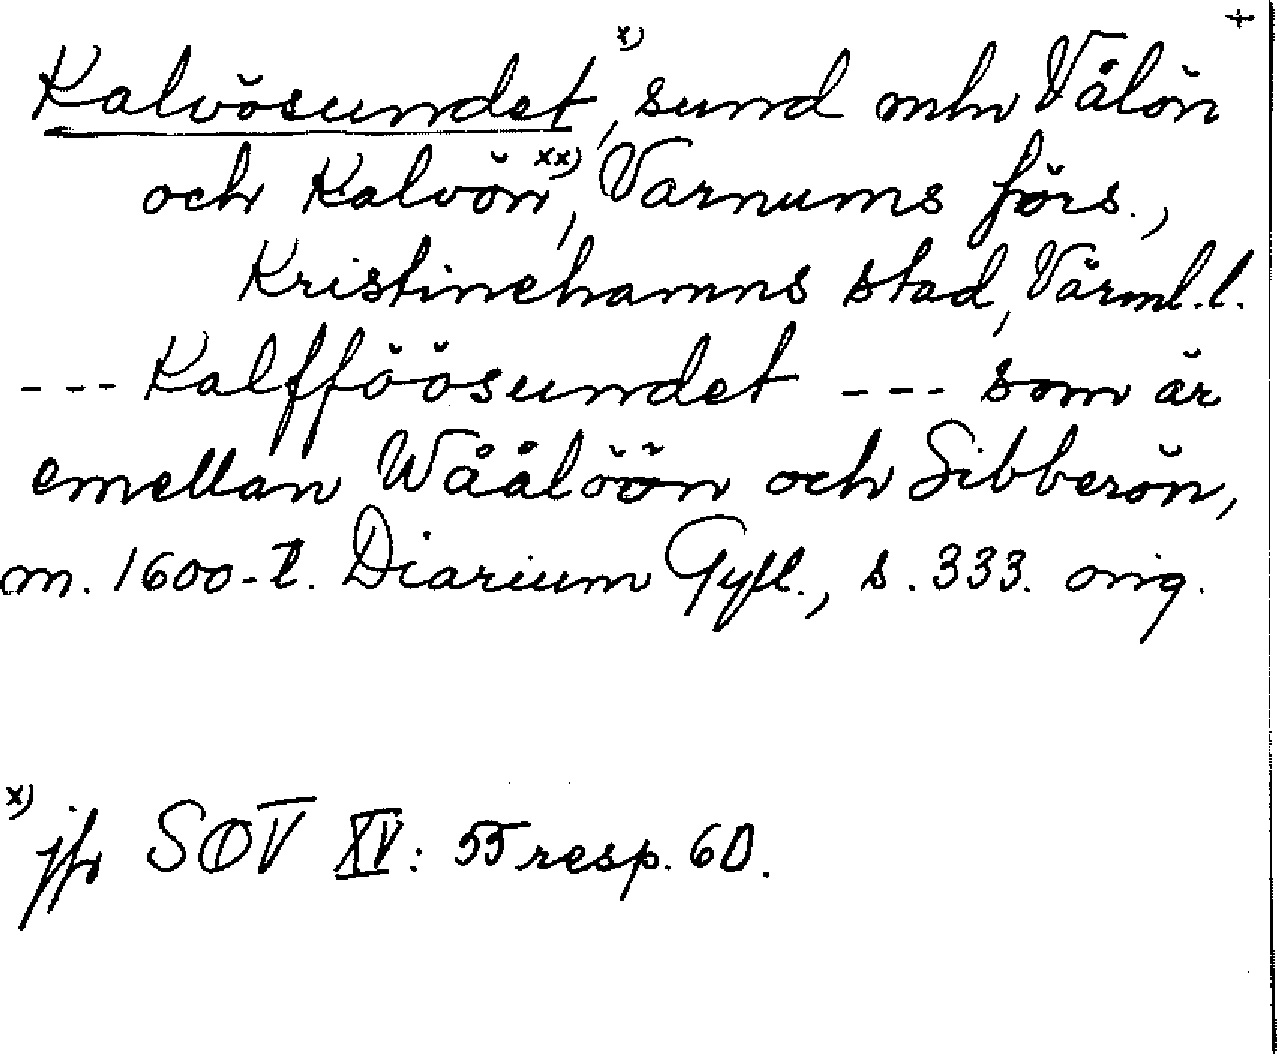 +
Kalvösundet x), sund mln Vålön
och Kalvön xx), Varnums förs.,
Kristinehamns stad, Värml.l.
--- Kalfföösundet --- som är
emellan Wåålöön och Sibberön,
m. 1600-t. Diarium Gyll., s. 333. orig.
x) jfr SOV XV: 55 resp. 60.